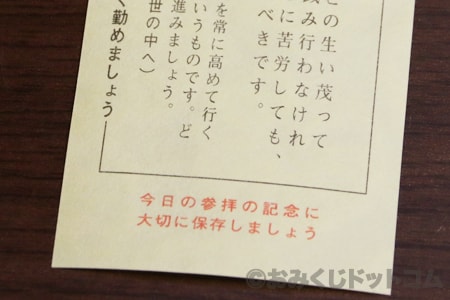 どの生い茂って
み行わなけれ
に苦労しても、
べきです。
を常に高めて行く
いうものです。ど
進みましょう。
世の中へ)
く勤めましょう
今日の参拝の記念に
大切に保存しましょう
©おみくじドットコム